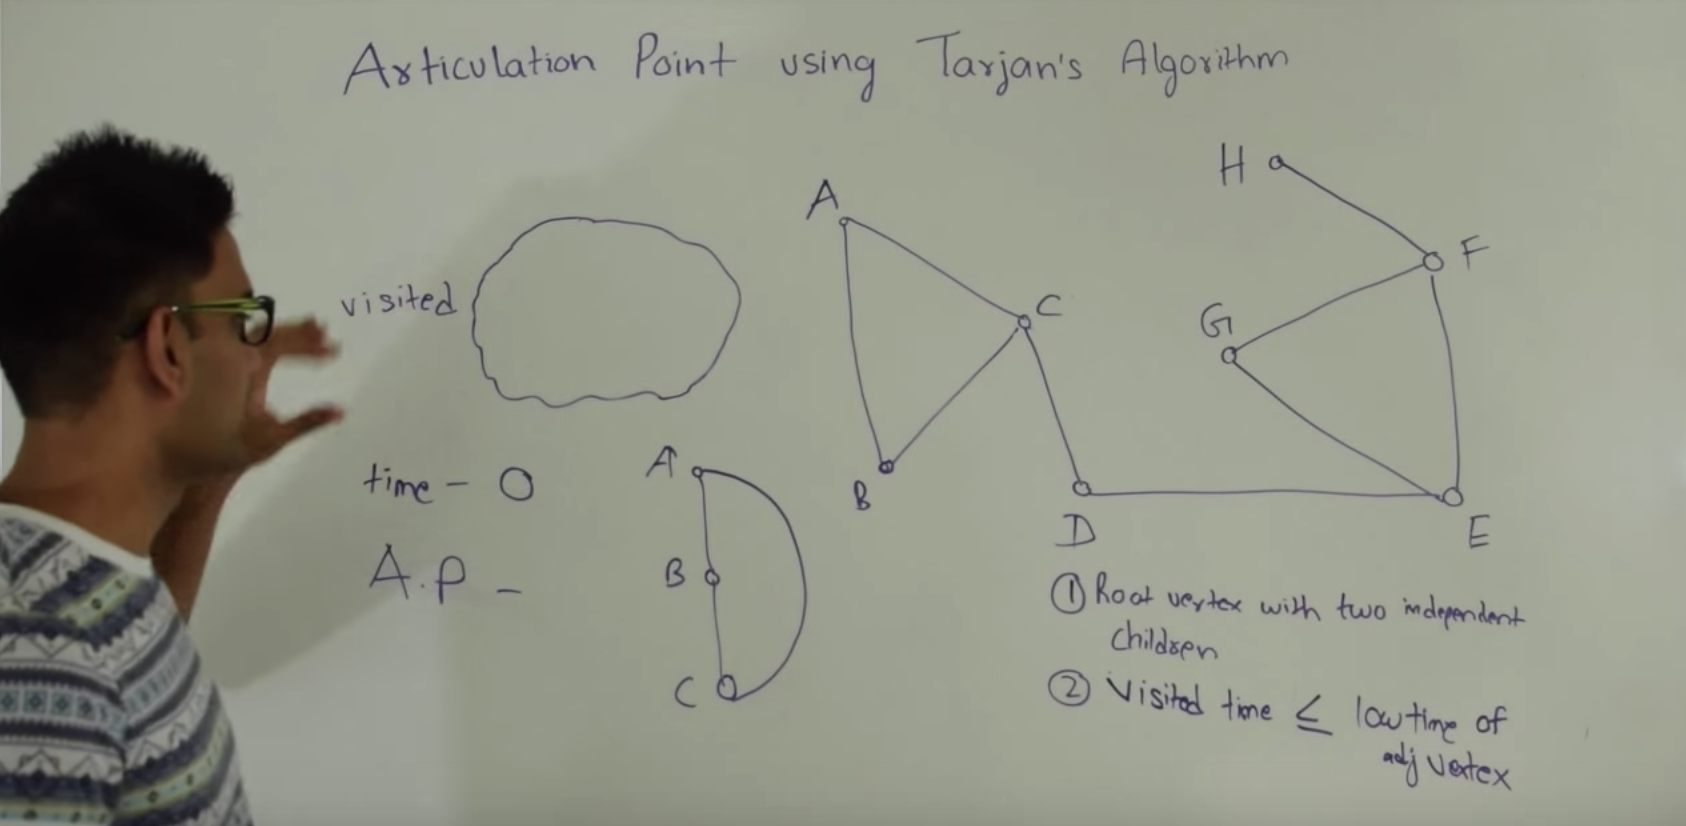 Articulation Point using Tarjan's Algorithm
visited
A
C
B
D
H
F
G
E
time - 0
A.P -
A
B
C
① Root vertex with two independent
children
② Visited time ≤ low time of
adj vertex